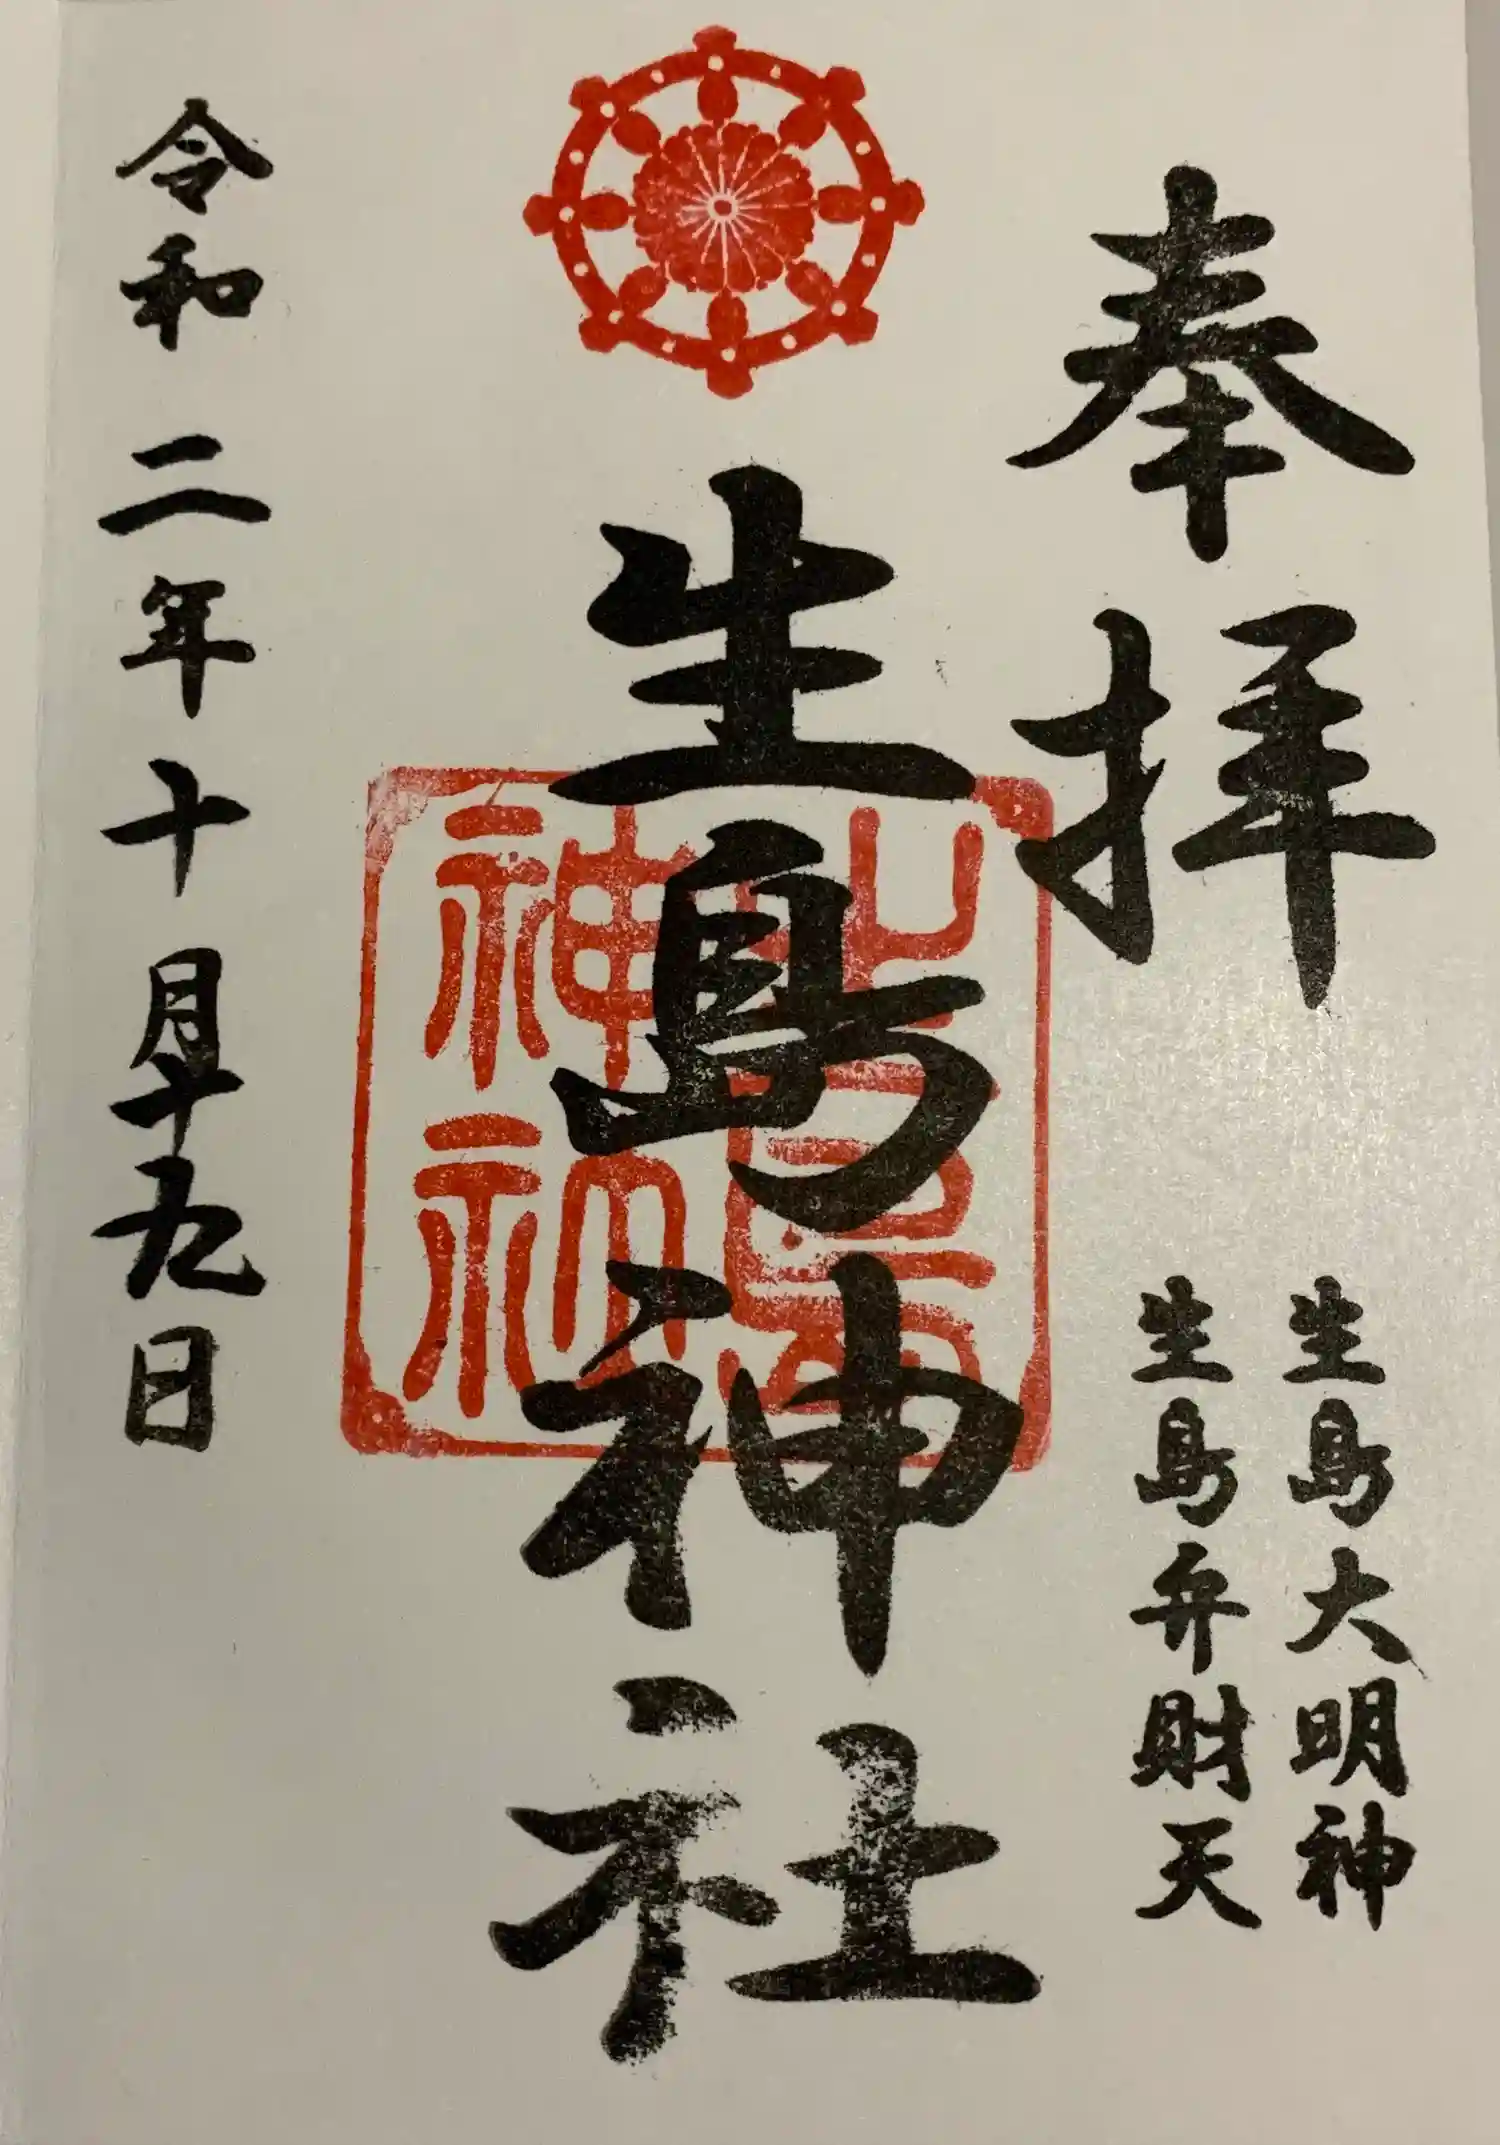 奉拝
生島大明神
生島弁財天
生島神社
生島
神社
令和二年十月十九日